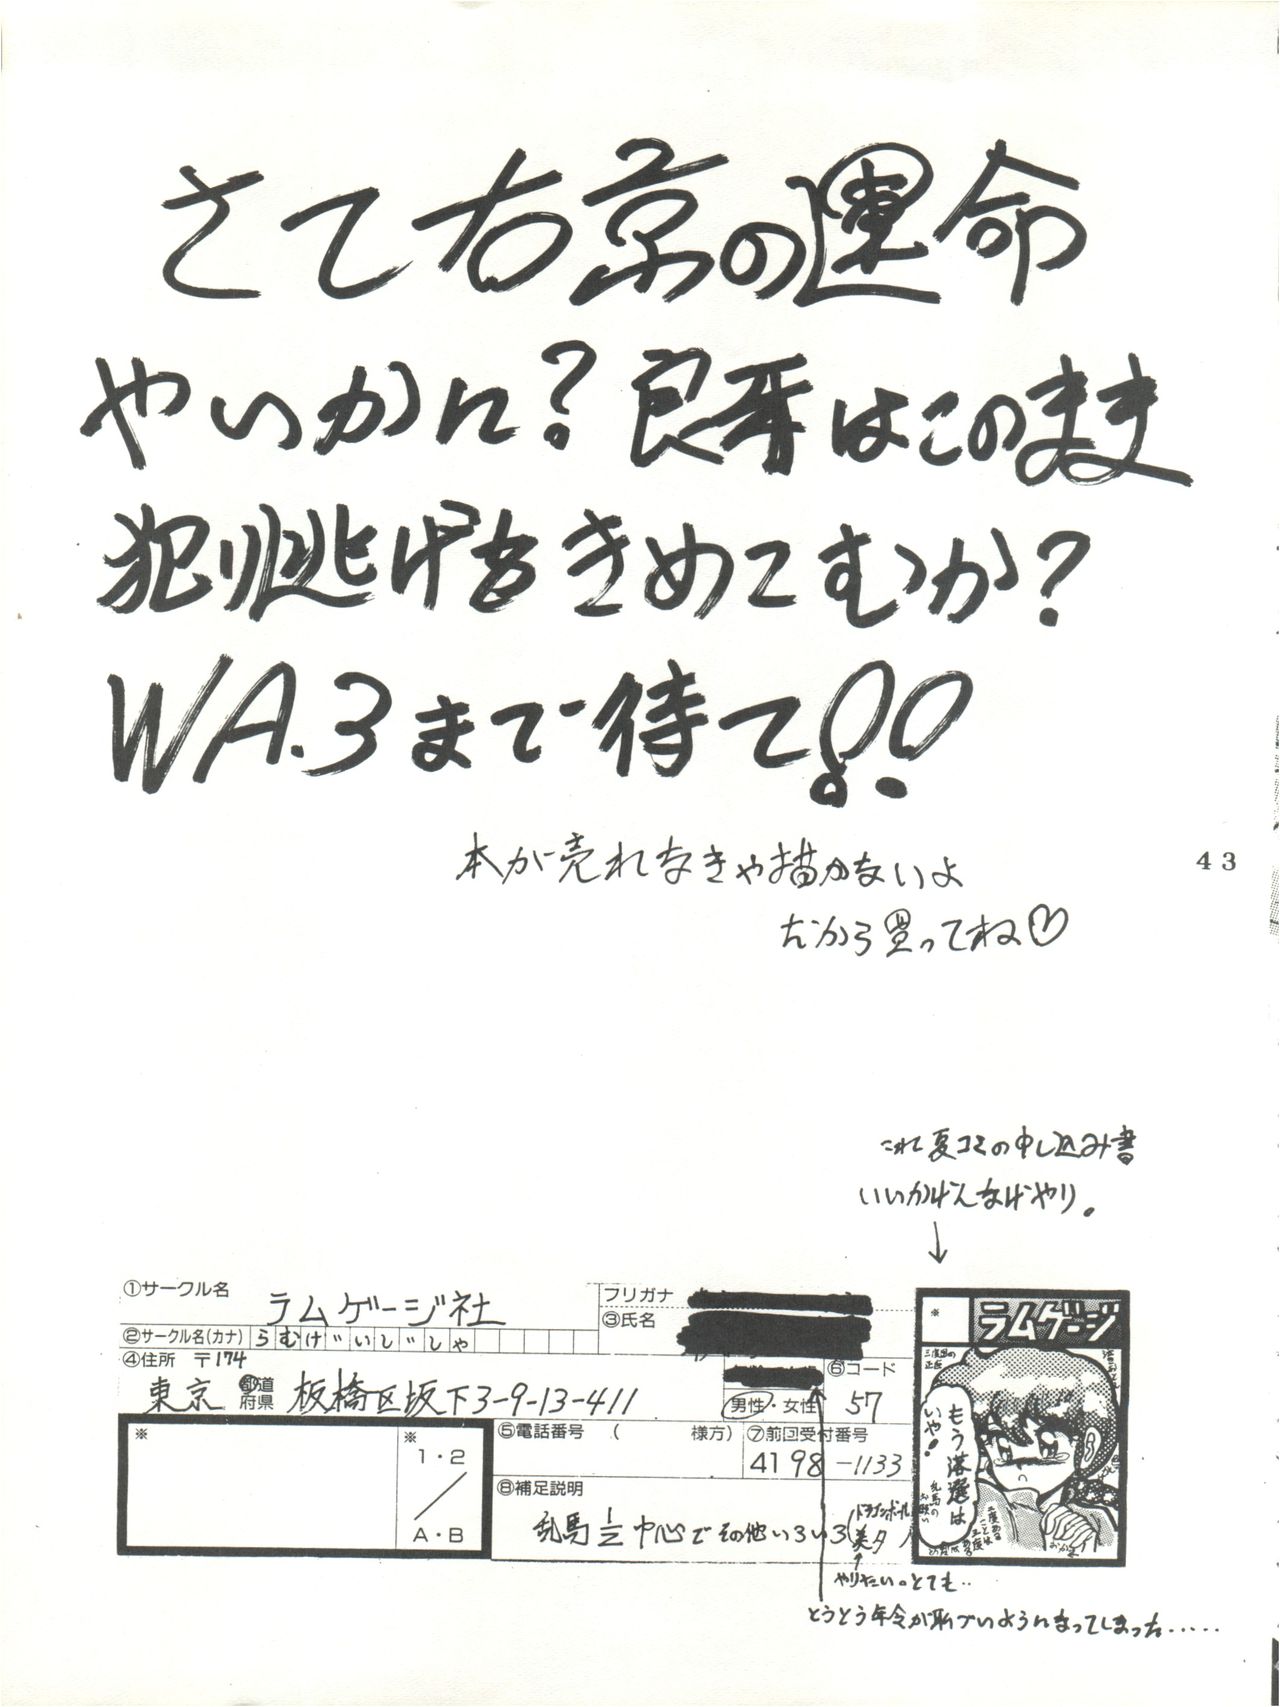 さて右京の運命
やいかに？良牙はこのまま
犯り逃げをきめてむか？
WA.3まで待て!!
本が売れなきゃ描かないよ
だから買ってね♡
43
これ夏コミの申し込み書
いいかげんなげやり。
↓
①サークル名
ラムゲージ社
フリガナ
③氏名
②サークル名(カナ) らむげ゛いじ゛しゃ
④住所 〒174
東京 都道府県 板橋区坂下3-9-13-411
男性・女性
⑥コード
57
※
※
1・2
A・B
⑤電話番号 ( 様方)
⑦前回受付番号
4198-1133
⑧補足説明
乱馬½中心でその他いろいろ(ドラゴンボール
美夕
※
ラムゲージ
もう落選は
いや！
乱馬の
お願い
やりたい。とても..
とうとう年令が恥ずいようになってしまった.....